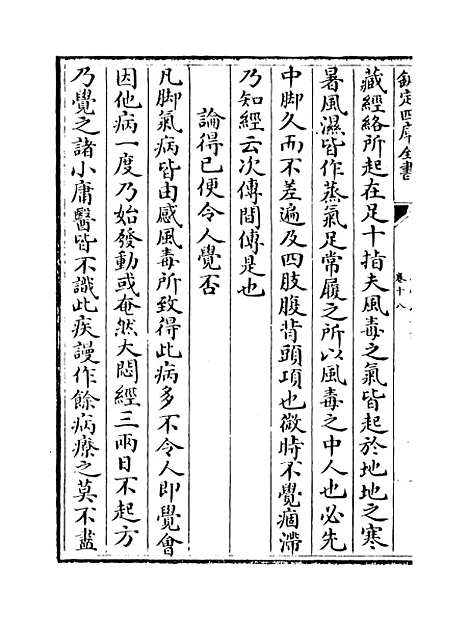 欽定四庫全書
卷十八
藏經絡所起在足十指夫風毒之氣皆起於地地之寒
暑風濕皆作蒸氣足常履之所以風毒之中人也必先
中脚久而不差遍及四肢腹背頭項也微時不覺痼滯
乃知經云次傳間傳是也
論得已便令人覺否
凡脚氣病皆由感風毒所致得此病多不令人即覺會
因他病一度乃始發動或奄然大悶經三兩日不起方
乃覺之諸小庸醫皆不識此疾謾作餘病療之莫不盡